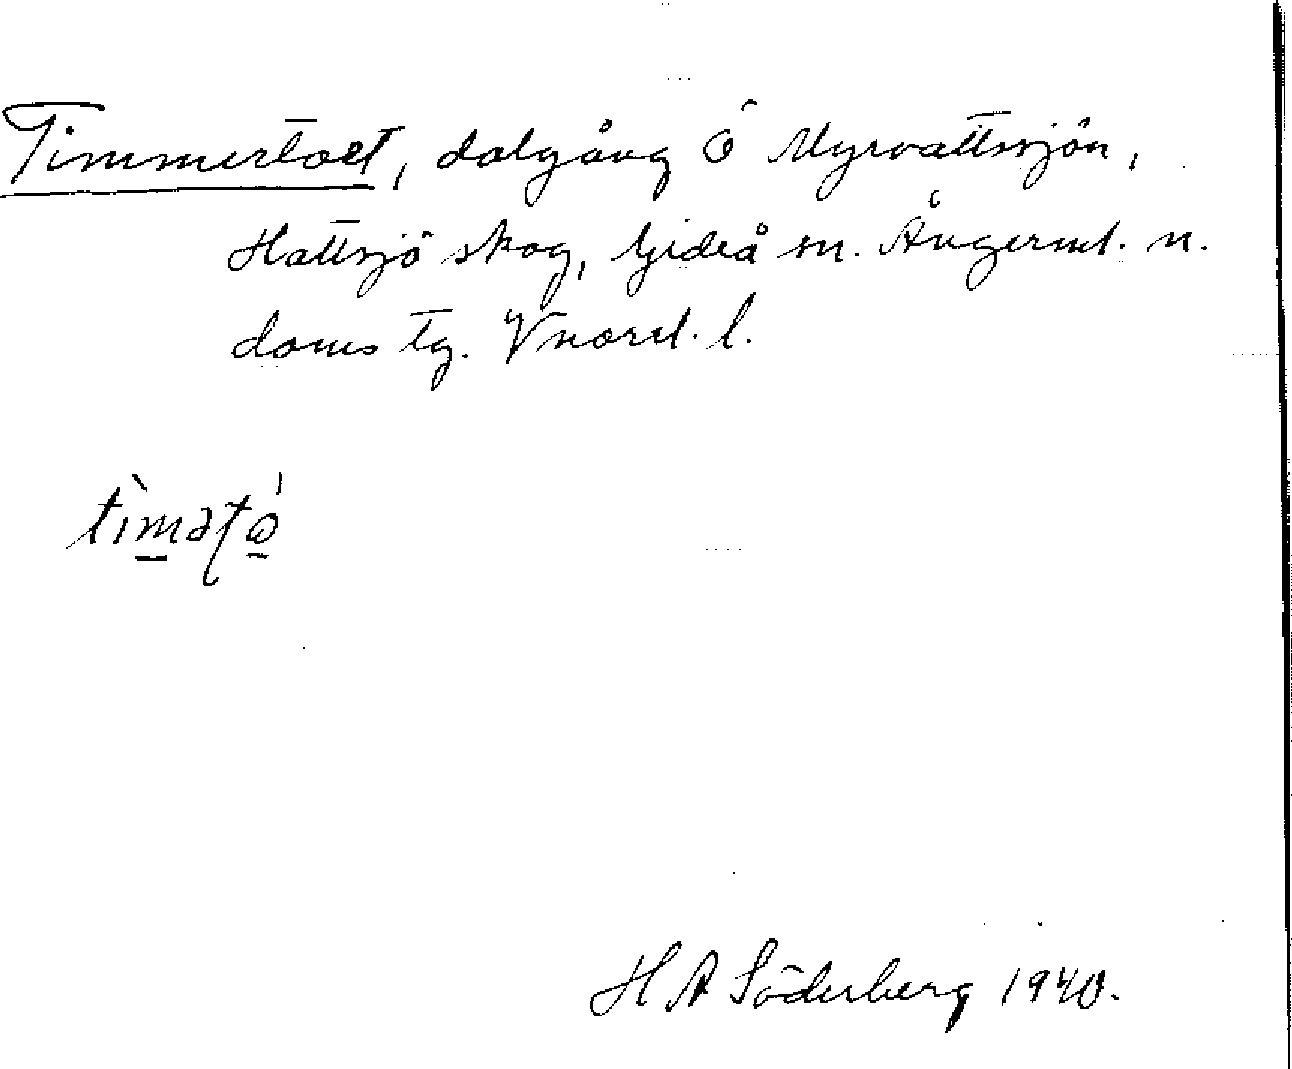 Timmertoet, dalgång Ö Myrvattssjön,
Hattsjö skog, Gideå sn. Ångerml. n.
doms tg. Vnorrl. l.
H A Söderberg 1940.